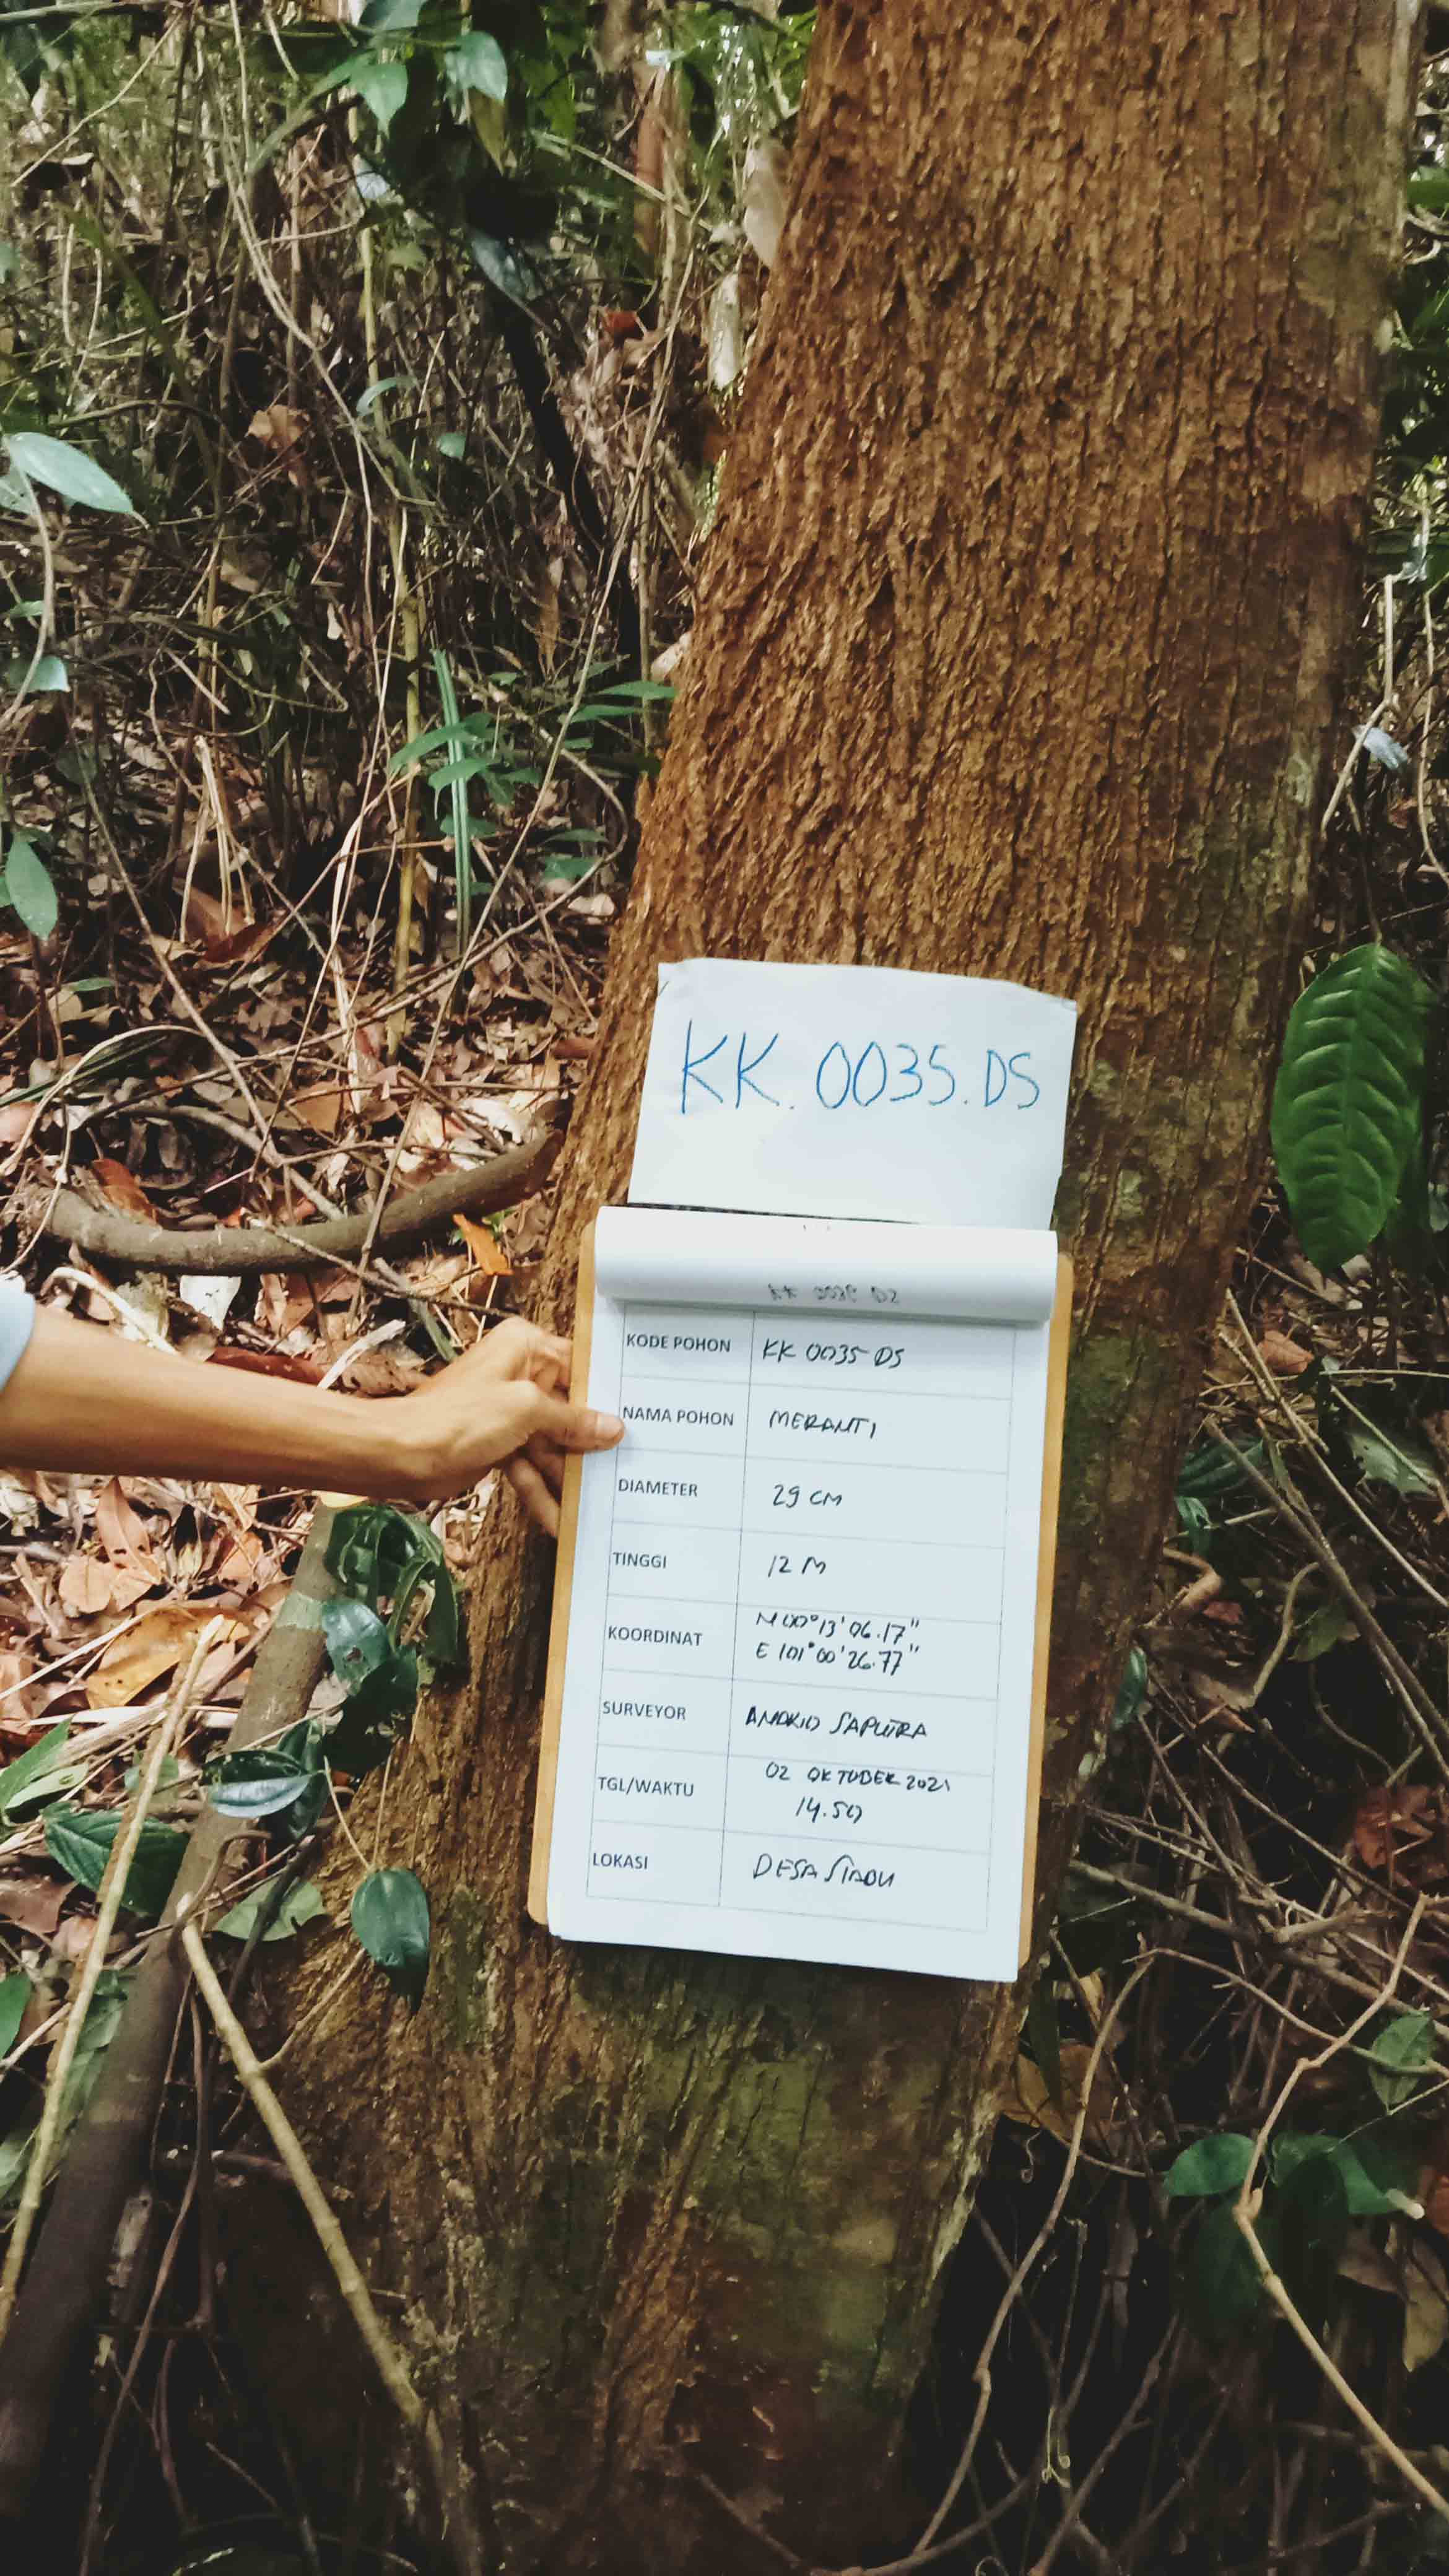 KK. 0035.DS
KODE POHON KK 0035 DS
NAMA POHON MERANTI
DIAMETER 29 CM
TINGGI 12 M
KOORDINAT N 00° 13' 06.17"
E 101° 00' 26.77"
SURVEYOR SAPUTRA
TGL/WAKTU 02 OKTOBER 2021
14.50
LOKASI DESA SIABU